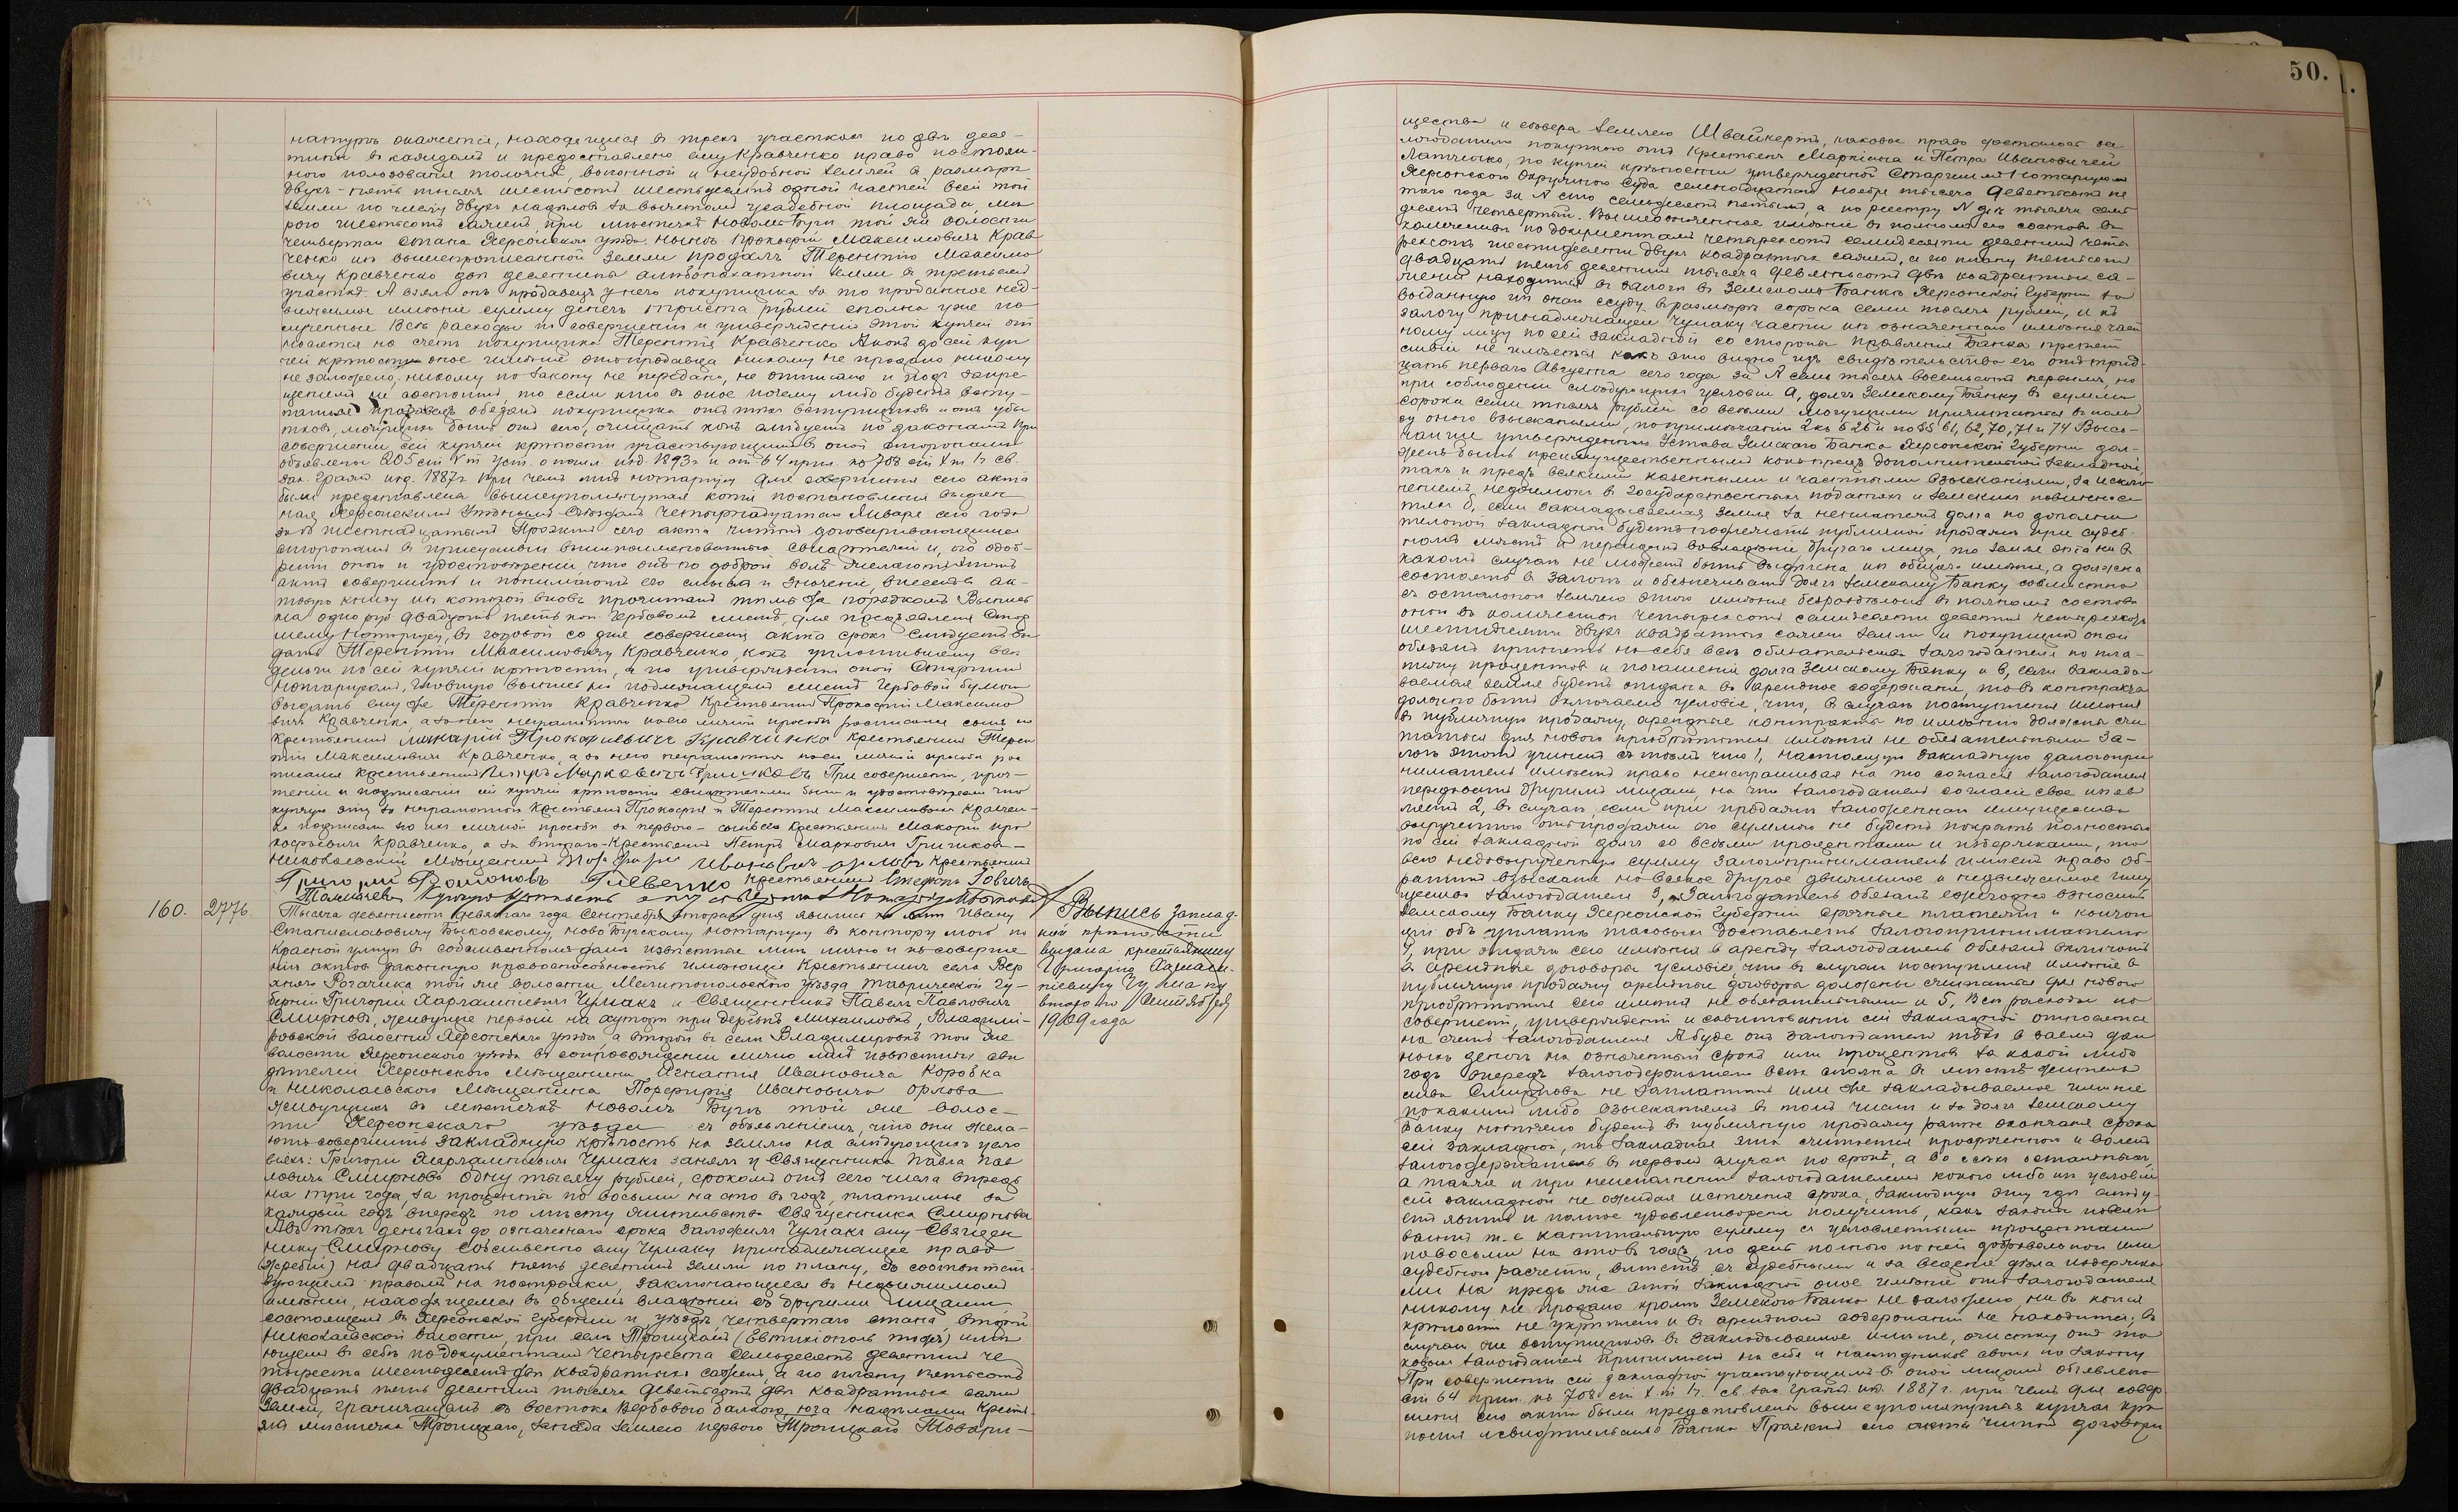 50.
натурѣ окажется, находящуюся въ трехъ участкахъ по двѣ деся-
тины въ каждомъ и предоставлено ему Кравченко право постоян-
ного пользованія толочной, выгонной и неудобной землей въ размѣрѣ
двухъ-пять тысячъ шестьсотъ шестьдесятъ одной частей всей той
земли по числу двухъ надѣловъ за вычетомъ усадебной площади, мѣ
рою шестьсотъ саженъ, при мѣстечкѣ Новомъ Бугѣ той же волости
четвертаго стана Херсонскаго уѣзда. Нынѣ Прокофій Максимовичъ Крав
ченко изъ вышепрописанной земли продалъ Терентію Максимо
вичу Кравченко двѣ десятины земли въ третьемъ
участкѣ. А взялъ онъ продавецъ у него покупщика за то проданное нед-
вижимое имѣніе сумму денегъ триста рублей сполна уже по
лученные Всѣ расходы по совершенію и утвержденію этой купчей от
носятся на счетъ покупщика Терентія Кравченко А какъ до сей куп
чей крѣпости оное имѣніе отъ продавца никому не продано никому
не заложено, никому по закону не передано, не отписано и подъ запре
щеніемъ не состоитъ, то если кто въ оное почему либо будетъ всту-
паться продавецъ обязанъ покупщика отъ тѣхъ вступщиковъ и отъ убы
тковъ, могущихъ быть отъ сего, очищать какъ слѣдуетъ по законамъ При
совершеніи сей купчей крѣпости участвующимъ въ оной сторонамъ
объявлены 205 ст V т Уст. о пошл. изд. 1893 г и ст 64 прил. къ 708 ст X т I ч св.
зак. Гражд изд. 1887 г При чемъ мнѣ нотаріусу для совершенія сего акта
была представлена вышеупомянутая копія постановленія выдан
ная Херсонскимъ Уѣзднымъ Съѣздомъ четырнадцатаго Января сего года
за № шестнадцатымъ Проектъ сего акта читанъ договаривающимся
сторонамъ въ присутствіи вышепоименованныхъ свидѣтелей и, по одоб-
реніи оного и удостовѣреніи, что они по доброй волѣ желаютъ этотъ
актъ совершить и понимаютъ его смыслъ и значеніе, внесенъ въ ак-
товую книгу изъ которой вновь прочитанъ тѣмъ же порядкомъ Выпись
на одно руб двадцать пять коп. гербовомъ листѣ, для предъявленія Стар
шему Нотаріусу, въ годовой со дня совершенія акта срокъ Слѣдуетъ вы
дать Терентію Максимовичу Кравченко, какъ уплатившему всѣ
деньги по сей купчей крѣпости, а по утвержденіи оной Старшимъ
Нотаріусомъ, таковую выпись на надлежащемъ листѣ гербовой бумаги
выдать ему же Терентію Кравченко Крестьянинъ Прокофій Максимо
вичъ Кравченко, а за него неграмотнаго по его личной просьбѣ расписался сынъ его
крестьянинъ Макарій Прокофіевичъ Кравченко Крестьянинъ Терен
тій Максимовичъ Кравченко, а за него неграмотнаго по его личной просьбѣ рас
писался крестьянинъ Петръ Марковичъ Гришковъ При совершеніи, проч-
теніи и подписаніи сей купчей крѣпости свидѣтелями были и удостовѣряемъ что
купчую эту за неграмотныхъ крестьянъ Прокофія и Терентія Максимовыхъ Кравчен-
ко подписали по ихъ личной просьбѣ за перваго-сынъ его Крестьянинъ Макарій Про
кофьевичъ Кравченко, а за втораго-Крестьянинъ Петръ Марковичъ Гришковъ-
Николаевскій Мѣщанинъ Порфирій Ивановичъ Орловъ Крестьянинъ
Григорій Глевенко Крестьянинъ Стефанъ
160. 2776.
Тысяча девятьсотъ девятаго года Сентября втораго дня явились ко мнѣ Ивану
Станиславовичу Быковскому, Ново Бугскому нотаріусу въ контору мою по
Красной улицѣ въ собственномъ домѣ извѣстные мнѣ лично и къ соверше
нію актовъ законную правоспособность имѣющіе Крестьянинъ села Вер
хняго Рогачика той же волости, Мелитопольскаго уѣзда Таврической Гу-
берніи Григорій Харлампіевичъ Чумакъ и Священникъ Павелъ Павловичъ
Смирновъ, живущіе первый на хуторѣ при деревнѣ Михайловкѣ, Владимі-
ровской волости Херсонскаго уѣзда, а второй въ селѣ Владимировкѣ той же
волости Херсонскаго уѣзда въ сопровожденіи лично мнѣ извѣстныхъ сви
дѣтелей Херсонскаго Мѣщанина Игнатія Ивановича Коробка
и Николаевскаго Мѣщанина Порфирія Ивановича Орлова
живущихъ въ мѣстечкѣ Новомъ Бугѣ той же волос-
ти Херсонскаго уѣзда съ объявленіемъ, что они жела-
ютъ совершить закладную крѣпость на землю на слѣдующихъ усло
віяхъ: Григорій Харлампіевичъ Чумакъ занялъ у Священника Павла Пав
ловича Смирнова одну тысячу рублей, срокомъ отъ сего числа впредь
на три года, за проценты по восьми на сто въ годъ, платимые за
каждый годъ впередъ по мѣсту жительства Священника Смирнова
А въ тѣхъ деньгахъ до означеннаго срока заложилъ Чумакъ ему Священ
нику Смирнову собственно ему Чумаку принадлежащее право
(жребій) на двадцать пять десятинъ земли по плану, съ соотвѣтст
вующимъ правомъ на постройки, заключающееся въ недвижимомъ
имѣніи, находящемся въ общемъ владѣніи съ другими лицами
состоящемъ въ Херсонской губерніи и уѣздѣ, четвертаго стана, второй
Николаевской волости, при селѣ Троицкомъ (Евтихіополь тожъ) имѣ
ющемъ въ себѣ по документамъ четыреста семьдесятъ десятинъ че
тыреста шестьдесятъ двѣ квадратныхъ сажени, а по плану пятьсотъ
двадцать пять десятинъ тысяча девятьсотъ двѣ квадратныхъ сажени
земли, граничащемъ съ востока Вербовою балкою, юга надѣлами кресть
янъ мѣстечка Троицкаго, запада землею перваго Троицкаго Товари-
Выпись заклад-
ной крѣпости
выдана крестьянину
Григорію Харлам-
піевичу Чумаку
второго Сентября
1909 года
щества и сѣвера землею Швайкертъ, каковое право досталось за
логодателю покупкою отъ Крестьянъ Маркіана и Петра Ивановичей
Латченко, по купчей крѣпости утвержденной Старшимъ Нотаріусомъ
Херсонскаго Окружного Суда семнадцатаго ноября тысяча девятьсотъ пя
таго года за № сто семьдесятъ пятымъ, а по реестру № двѣ тысячи семь
десятъ четвертый. Вышеозначенное имѣніе въ полномъ его составѣ въ
количествѣ по документамъ четырехсотъ семидесяти десятинъ четы
рехсотъ шестидесяти двухъ квадратныхъ саженъ, а по плану пятьсотъ
двадцати пять десятинъ тысяча девятьсотъ двѣ квадратныхъ са-
жени находится въ залогѣ въ Земскомъ Банкѣ Херсонской Губерніи за
выданную изъ оного ссуду въ размѣрѣ сорока семи тысячъ рублей, и къ
залогу принадлежащей Чумаку части изъ означеннаго имѣнія част
ному лицу по сей закладной со стороны Правленія Банка препят
ствій не имѣется какъ это видно изъ свидѣтельства его отъ трид-
цать перваго Августа сего года за № семь тысячъ восемьсотъ первымъ, но
при соблюденіи слѣдующихъ условій а, долгъ Земскому Банку въ суммѣ
сорока семи тысячъ рублей со всѣми могущими причитаться въ поль
зу оного взысканіями, по примѣчаніи 2 къ § 26 и по §§ 61, 62, 70, 71 и 74 Высо-
чайше утвержденнаго Устава Земскаго Банка Херсонской Губерніи дол-
женъ быть преимущественнымъ какъ предъ дополнительной закладной,
такъ и предъ всякими казенными и частными взысканіями, за исклю
ченіемъ недоимокъ въ государственныхъ податяхъ и земскихъ повиннос
тяхъ б, если закладываемая земля за неплатежъ долга по дополни
тельной закладной будетъ подлежать публичной продажѣ при судеб-
номъ мѣстѣ и перейдетъ во владѣніе другаго лица, то земля эта ни въ
какомъ случаѣ не можетъ быть выдѣлена изъ общаго имѣнія, а должна
состоять въ залогѣ и обезпечивать долгъ Земскому Банку совмѣстно
съ остальной землею этого имѣнія безраздѣльно въ полномъ составѣ
оного въ количествѣ четырехсотъ семидесяти десятинъ четырехсотъ
шестидесяти двухъ квадратныхъ саженъ земли и покупщикъ оной
обязанъ принять на себя всѣ обязательства залогодателя по пла-
тежу процентовъ и погашенія долга Земскому Банку и в, если заклады
ваемая земля будетъ отдана въ арендное содержаніе, то въ контрактѣ
должно быть включено условіе, что, въ случаѣ поступленія имѣнія
въ публичную продажу, арендные контракты по имѣнію должны счи
таться для новаго пріобрѣтателя имѣнія не обязательными За-
логъ этотъ учиненъ съ тѣмъ что 1, настоящую закладную залогопри
ниматель имѣетъ право неиспрашивая на то согласія залогодателя
передавать другимъ лицамъ, на что залогодатель согласіе свое изъяв
ляетъ 2, въ случаѣ, если при продажѣ заложеннаго имущества
вырученною отъ продажи его суммою не будетъ покрытъ полностью
по сей закладной долгъ со всѣми процентами и издержками, то
всю недовырученную сумму залогоприниматель имѣетъ право об-
ратить взысканіе на всякое другое движимое и недвижимое иму
щество залогодателя 3, Залогодатель обязанъ ежегодно вносить
Земскому Банку Херсонской Губерніи срочные платежи и квитан
ціи объ уплатѣ таковыхъ доставлять залогопринимателю
4, при отдачѣ сего имѣнія въ аренду залогодатель обязанъ включать
въ арендные договоры условіе, что въ случаѣ поступленія имѣнія въ
публичную продажу арендные договоры должны считаться для новаго
пріобрѣтателя сего имѣнія не обязательными и 5, Всѣ расходы по
совершенію, утвержденію и сей закладной относятся
на счетъ залогодателя А буде онъ залогодатель тѣхъ въ заемъ дан
ныхъ денегъ на означенный срокъ или процентовъ за какой либо
годъ впередъ залогодержателю всѣхъ сполна въ мѣстѣ житель
ства Смирнова не заплатитъ или же закладываемое имѣніе
по какимъ либо взысканіямъ въ томъ числѣ и за долгъ Земскому
Банку назначено будетъ въ публичную продажу ранѣе окончанія срока
сей закладной, то закладная эта считается просроченною и воленъ
залогодержатель въ первомъ случаѣ по срокѣ, а во всѣхъ остальныхъ,
а также и при неисполненіи залогодателемъ какого либо изъ условій
сей закладной не ожидая истеченія срока, закладную эту гдѣ слѣду-
етъ явить и полное удовлетвореніе получить, какъ законы повелѣ
ваютъ т.е. капитальную сумму съ условленными процентами
по восьми на сто въ годъ, по день полного по ней добровольнаго или
судебнаго расчета, вмѣстѣ съ судебными и за веденіе дѣла издержка
ми На предь же этой закладной оное имѣніе отъ залогодателя
никому не продано кромѣ Земскаго Банка не заложено, ни въ какія
крѣпости не укрѣплено и въ арендномъ содержаніи не находится; въ
случаѣ же вступщиковъ въ закладываемое имѣніе, очистку отъ та
ковыхъ залогодатель принимаетъ на себя и наслѣдниковъ своихъ по закону
При совершеніи сей закладной участвующимъ въ оной лицамъ объявлено
ст 64 прил. къ 708 ст X т I ч. св. зак. Гражд. изд. 1887 г. при чемъ для совер
шенія сего акта были представлены вышеупомянутыя купчая крѣ
пость и свидѣтельство Банка Проектъ сего акта читанъ договари